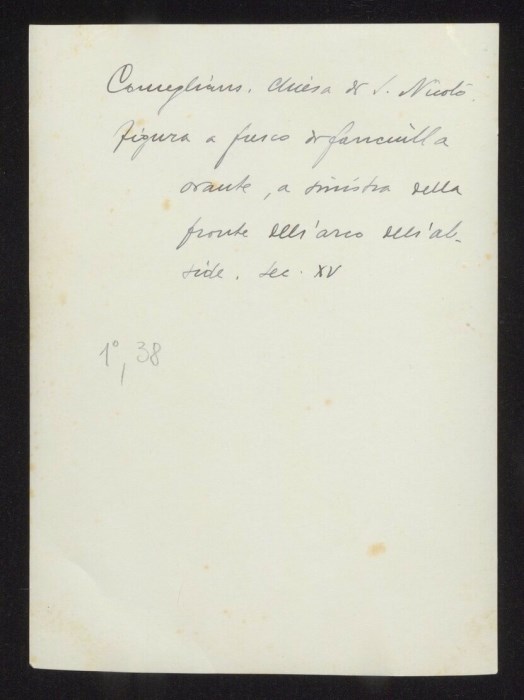 Comeglians. Chiesa di S. Nicolò.
Figura a fresco di fanciulla
orante, a sinistra della
fronte dell'arco dell'ab-
side. sec. XV
1°, 38